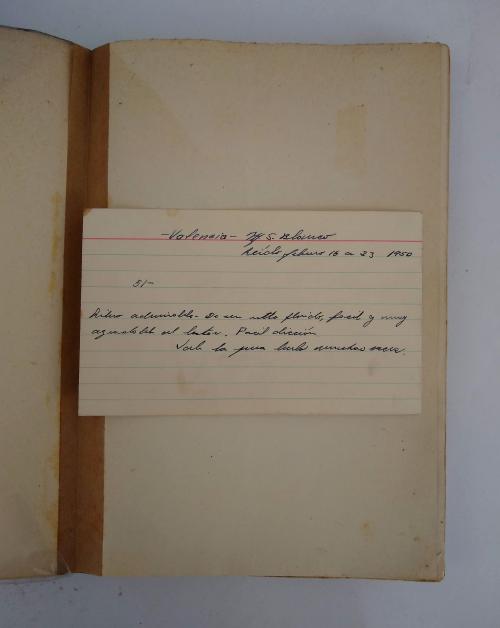 -Valencia- S. Blanco
Leido, febrero 16 a 23 1950
51-
Libro admirable. De un estilo florido, facil y muy
agradable al lector. Facil dicción
Vale la pena leerlo muchas veces.